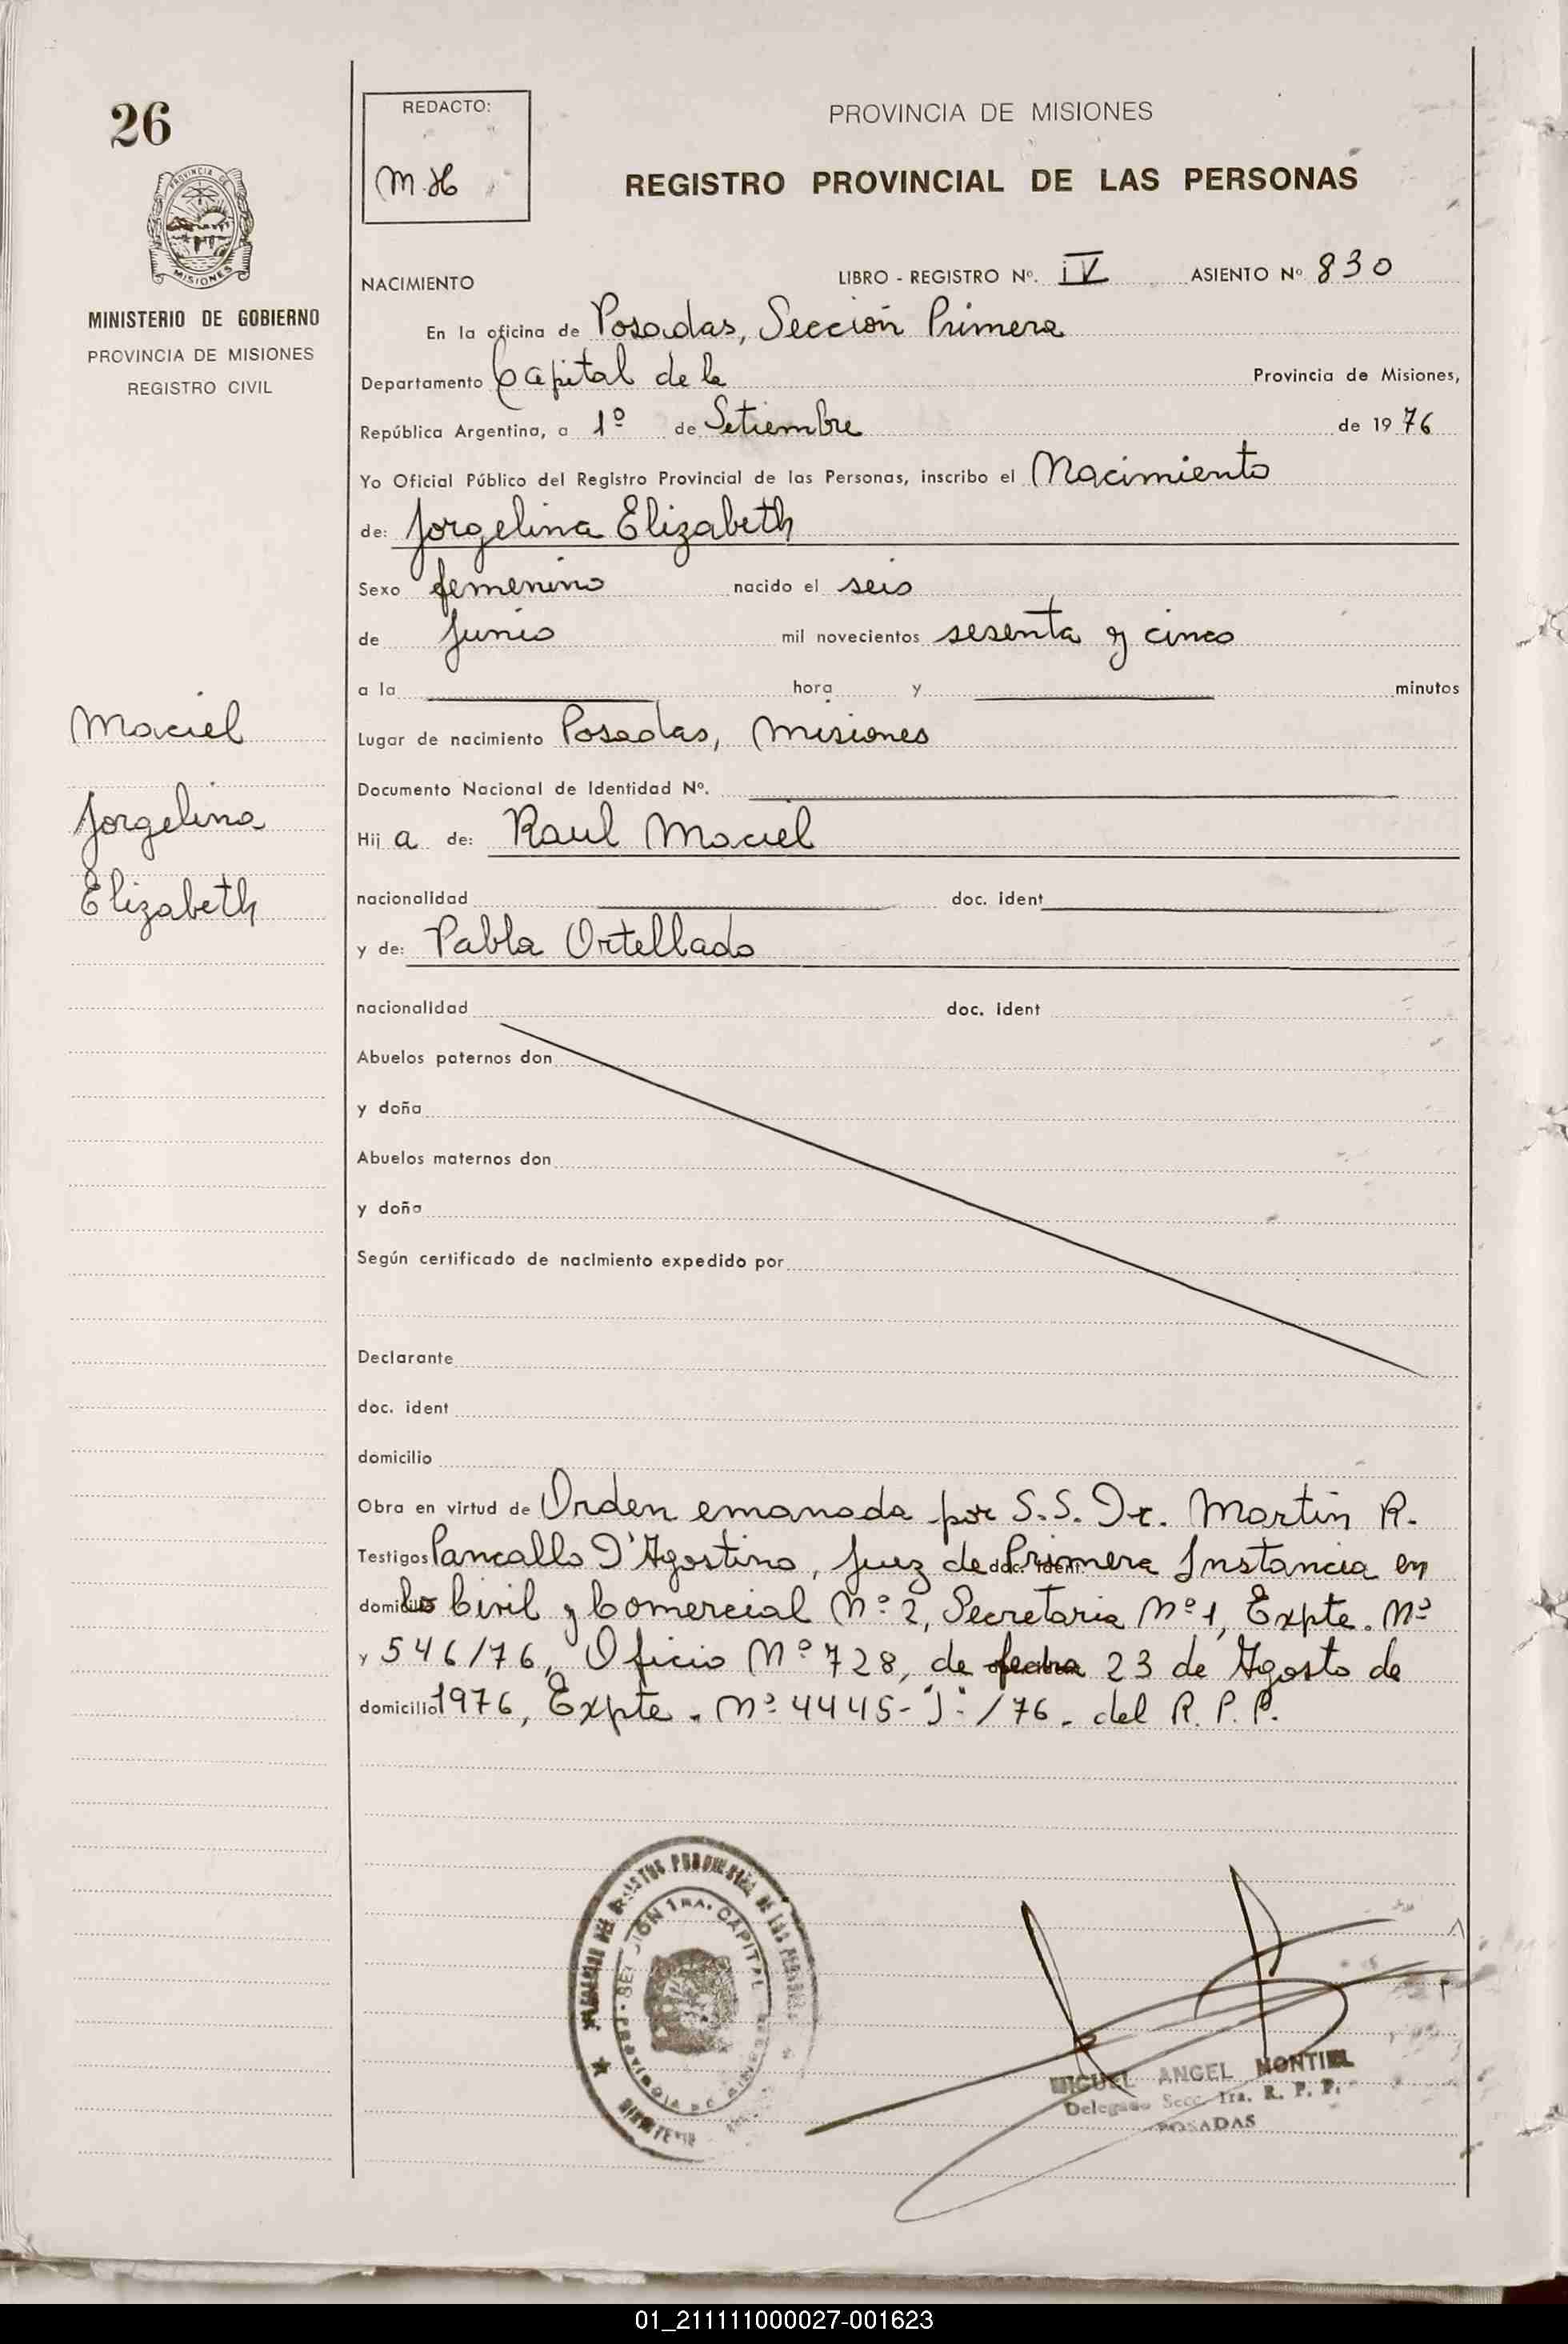 26
PROVINCIA DE
MISIONES
MINISTERIO DE GOBIERNO
PROVINCIA DE MISIONES
REGISTRO CIVIL
REDACTO:
M.H
PROVINCIA DE MISIONES
REGISTRO PROVINCIAL DE LAS PERSONAS
NACIMIENTO LIBRO - REGISTRO Nº. IV ASIENTO Nº 830
En la oficina de Posadas, Sección Primera
Departamento Capital de la Provincia de Misiones,
República Argentina, a 1º de Setiembre de 1976
Yo Oficial Público del Registro Provincial de las Personas, inscribo el Nacimiento
de: Jorgelina Elizabeth
Sexo femenino nacido el seis
de Junio mil novecientos sesenta y cinco
a la hora y minutos
Maciel
Jorgelina
Elizabeth
Lugar de nacimiento Posadas, Misiones
Documento Nacional de Identidad Nº.
Hija de: Raul Maciel
nacionalidad doc. ident
y de: Pabla Ortellado
nacionalidad doc. ident
Abuelos paternos don
y doña
Abuelos maternos don
y doña
Según certificado de nacimiento expedido por
Declarante
doc. ident
domicilio
Obra en virtud de Orden emanada por S.S. Dr. Martin R.
Testigos Pancallo D'Agostino, Juez de doc. ident. Primera Instancia en
domicilio lo Civil y Comercial Nº 2, Secretaria Nº 1, Expte. Nº
y 546/76, Oficio Nº 728, de fecha 23 de Agosto de
domicilio 1976, Expte. Nº 4445-"J"/76. del R. P. P.
SECCION 1RA. CAPITAL
MIGUEL ANGEL MONTIEL
Delegado Secc. 1ra. R. P. P.
POSADAS
01_211111000027-001623